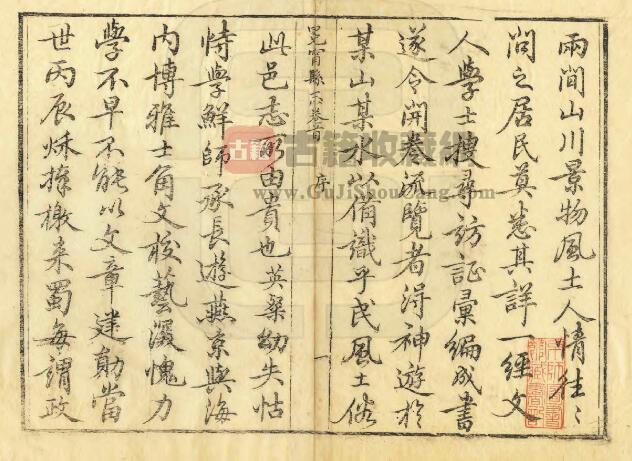 兩間山川景物風土人情往〻
問之居民莫悉其詳一經文
人學士搜尋訪証彙編成書
遂令開卷流覽者得神遊於
某山某水以備識乎民風土俗
冕甯縣志卷首 序 一
此邑志所由貴也英粲幼失怙
恃學鮮師承長遊燕京與海
内博雅士角文校藝深愧力
學不早不能以文章建勛當
世丙辰秋捧檄來蜀每謂政
古籍 古籍收藏網
www.GuJiShouCang.com